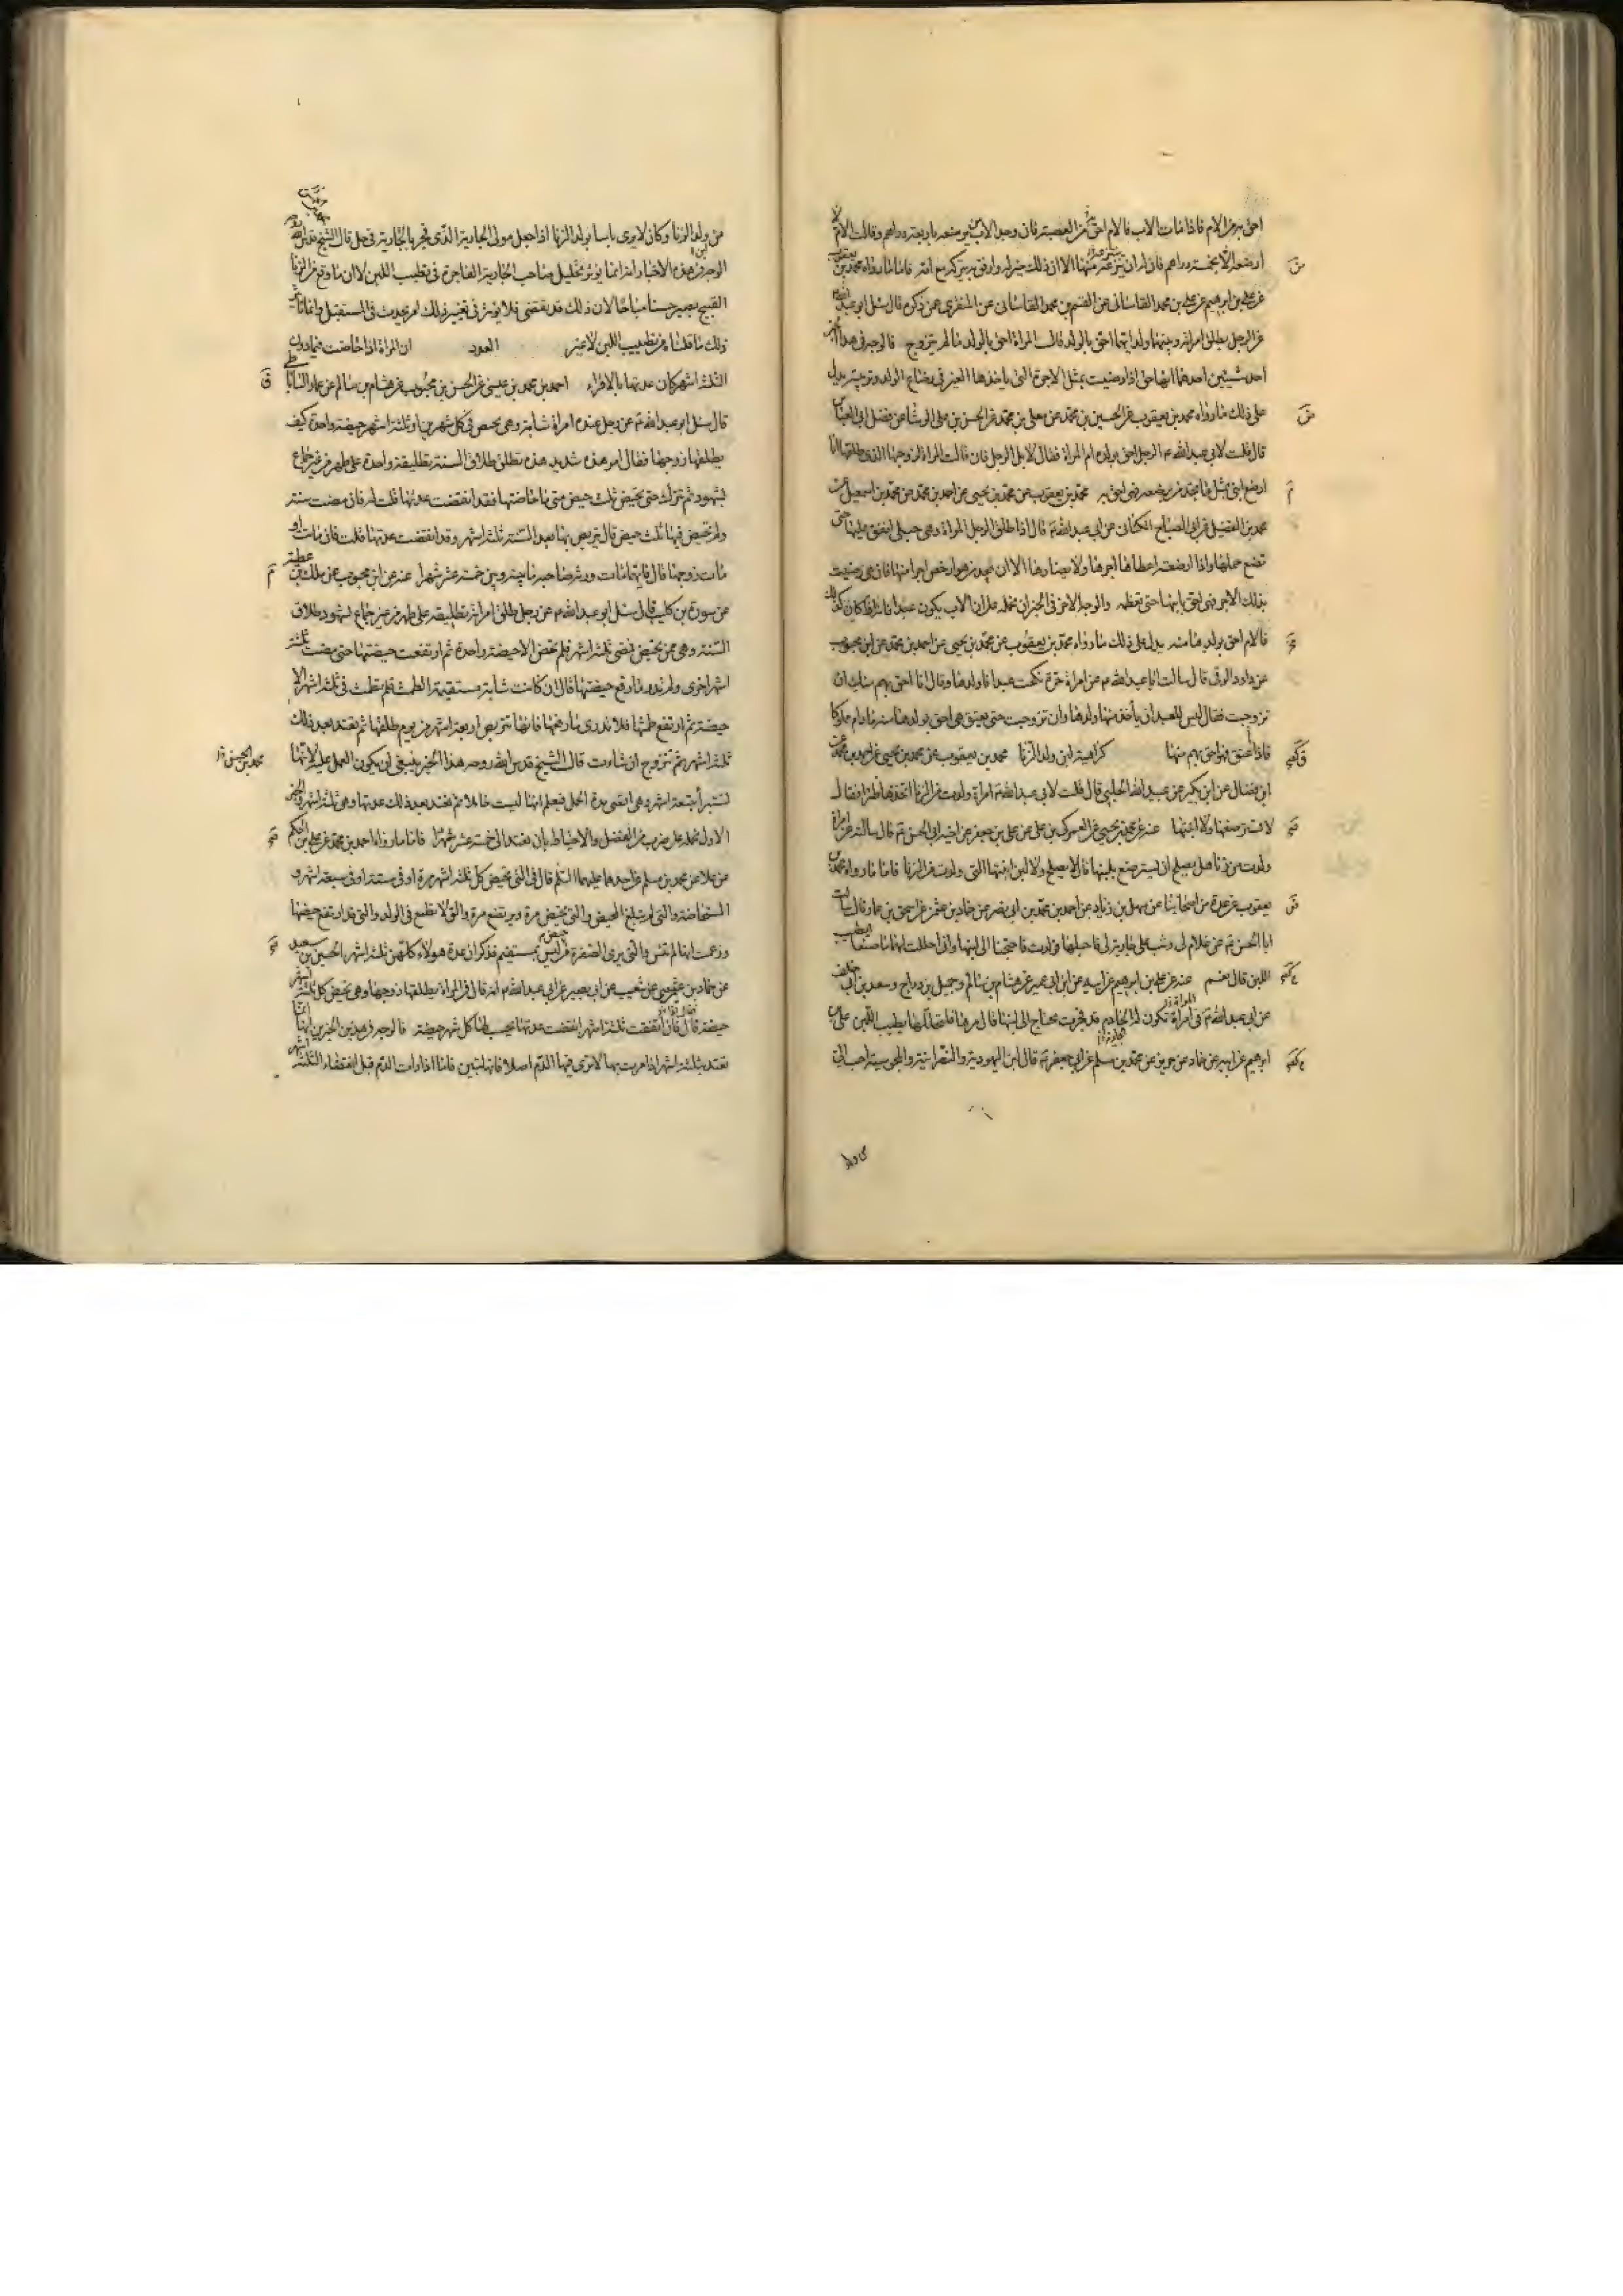 احق به من الام فاذا مات الاب فالام احق به من العصبة فان وجد الاب من يرضعه باربعة دراهم وقالت الام
لا ارضعه الا بخمسة دراهم فان له ان ينزعه منها الا ان ذلك خير له وارفق به يتركه مع امه فاما ما رواه محمد بن يعقوب
عن علي بن ابراهيم عن علي بن محمد القاساني عن القسم بن محمد القاساني عن المنقري عمن ذكره قال سئل ابو عبد الله
عن الرجل يطلق امراته وبينهما ولد ايهما احق بالولد قال المراة احق بالولد ما لم تتزوج فالوجه في هذا الخبر
احد شيئين احدهما انها احق اذا رضيت بمثل الاجرة التي ياخذها الغير في رضاع الولد وتربيته يدل
على ذلك ما رواه محمد بن يعقوب عن الحسين بن محمد عن معلى بن محمد عن الحسن بن علي الوشا عن فضل ابي العباس
قال قلت لابي عبد الله ع الرجل احق بولده ام المراة فقال لا بل الرجل فان قالت المراة لزوجها الذي طلقها انا
ارضع ابني بمثل ما تجد من يرضعه فهي احق به محمد بن يعقوب عن محمد بن يحيى عن احمد بن محمد عن محمد بن اسمعيل عن
محمد بن الفضيل عن ابي الصباح الكناني عن ابي عبد الله ع قال اذا طلق الرجل المراة وهي حبلى انفق عليها حتى
تضع حملها واذا ارضعته اعطاها اجرها ولا يضارها الا ان يجد من هو ارخص اجرا منها فان هي رضيت
بذلك الاجر فهي احق بابنها حتى تفطمه والوجه الاخر في الخبر ان نحمله على ان الاب يكون عبدا فانه اذا كان كذلك
فالام احق بولدها منه يدل على ذلك ما رواه محمد بن يعقوب عن محمد بن يحيى عن احمد بن محمد عن ابن محبوب
عن داود الرقي قال سالت ابا عبد الله ع عن امراة حرة نكحت عبدا فاولدها وقال انا احق بهم منك ان
تزوجت فقال ليس للعبد ان ياخذ منها ولدها وان تزوجت حتى يعتق هي احق بولدها منه ما دام مملوكا
فاذا اعتق فهو احق بهم منها كراهية لبن ولد الزنا محمد بن يعقوب عن محمد بن يحيى عن احمد بن محمد عن
ابن فضال عن ابن بكير عن عبيد الله الحلبي قال قلت لابي عبد الله ع امراة ولدت من الزنا اتخذها ظئرا فقال
لا تسترضعها ولا ابنتها عنه عن محمد بن يحيى عن العمركي بن علي عن علي بن جعفر عن اخيه ابي الحسن ع قال سالته عن امراة
ولدت من زنا هل يصلح ان يسترضع بلبنها قال لا يصلح ولا لبن ابنتها التي ولدت من الزنا فاما ما رواه محمد بن
يعقوب عن عدة من اصحابنا عن سهل بن زياد عن احمد بن محمد بن ابي نصر عن حماد بن عثمن عن اسحق بن عمار قال سالت
ابا الحسن ع عن غلام لي وثب على جارية لي فاحبلها فولدت فاحتجنا الى لبنها واذا احللت لهما ما صنعا ايطيب
اللبن قال نعم عنه عن علي بن ابراهيم عن ابيه عن ابن ابي عمير عن هشام بن سالم وجميل بن دراج وسعد بن ابي خلف
عن ابي عبد الله ع في امراة تكون لها الخادم قد فجرت تحتاج الى لبنها قال مرها فلتحللها يطيب اللبن علي بن
ابرهيم عن ابيه عن حماد عن حريز عن محمد بن مسلم عن ابي جعفر ع قال لبن اليهودية والنصرانية والمجوسية احب الي
من ولد الزنا وكان لا يرى باسا بولد الزنا اذا جعل مولى الجارية الذي فجر بالجارية في حل قال الشيخ قدس الله
الوجه في هذه الاخبار انه انما يؤثر تحليل صاحب الجارية الفاجرة في تطييب اللبن لا ان ما وقع من الزنا
القبيح يصير حسنا مباحا لان ذلك قد تقضى فلا يؤثر في تغيير ذلك امر يحدث في المستقبل وانما
ذلك ما قلناه من تطييب اللبن لا غير العدد ان المراة اذا حاضت فيما دون
الثلثة اشهر كان عدتها بالاقراء احمد بن محمد بن عيسى عن الحسن بن محبوب عن هشام بن سالم عن عمار الساباطي
قال سئل ابو عبد الله ع عن رجل عنده امراة شابة وهي تحيض في كل شهرين او ثلثة اشهر حيضة واحدة كيف
يطلقها زوجها فقال امر هذه شديد هذه تطلق طلاق السنة تطليقة واحدة على طهر من غير جماع
بشهود ثم تترك حتى تحيض ثلث حيض متى ما حاضتها فقد انقضت عدتها قلت له فان مضت سنة
ولم تحض فيها ثلث حيض قال يتربص بها بعد السنة ثلثة اشهر وقد انقضت عدتها قلت فان ماتت او
مات زوجها قال فايهما مات ورثه صاحبه ما بينه وبين خمسة عشر شهرا عنه عن ابن محبوب عن ملك بن عطية
عن سورة بن كليب قال سئل ابو عبد الله ع عن رجل طلق امراته تطليقة على طهر من غير جماع بشهود طلاق
السنة وهي ممن تحيض فمضى ثلثة اشهر فلم تحض الا حيضة واحدة ثم ارتفعت حيضتها حتى مضت ثلثة
اشهر اخرى ولم تدر ما رفع حيضتها قال ان كانت شابة مستقيمة الطمث فلم تطمث في ثلثة اشهر الا
حيضة ثم ارتفع طمثها فلا تدري ما رفعها فانها تتربص تسعة اشهر من يوم طلقها ثم تعتد بعد ذلك
ثلثة اشهر ثم تتزوج ان شاءت قال الشيخ قدس الله روحه هذا الخبر ينبغي ان يكون العمل عليه لانها
تستبرأ بتسعة اشهر وهي اقصى مدة الحمل فيعلم انها ليست حاملا ثم تعتد بعد ذلك عدتها وهي ثلثة اشهر والخبر
الاول نحمله على ضرب من الفضل والاحتياط بان تعتد الى خمسة عشر شهرا فاما ما رواه احمد بن محمد عن علي بن الحكم
عن علا عن محمد بن مسلم عن احدهما عليهما السلم قال في التي تحيض كل ثلثة اشهر مرة او في ستة او في سبعة اشهر و
المستحاضة والتي لم تبلغ المحيض والتي تحيض مرة ويرتفع مرة والتي لا تطمع في الولد والتي قد ارتفع حيضها
وزعمت انها لم تيئس والتي ترى الصفرة من حيض ليس بمستقيم فذكر ان عدة هؤلاء كلهن ثلثة اشهر الحسين بن سعيد
عن حماد بن عيسى عن شعيب عن ابي بصير عن ابي عبد الله ع انه قال في المراة يطلقها زوجها وهي تحيض كل ثلثة اشهر
حيضة فقال اذا انقضت ثلثة اشهر انقضت عدتها يحسب لها كل شهر حيضة فالوجه في هذين الخبرين انها انما
تعتد بثلثة اشهر اذا مرت بها لا ترى فيها الدم اصلا فانها تبين فاما اذا رات الدم قبل انقضاء الثلثة اشهر
محمد بن الحسن